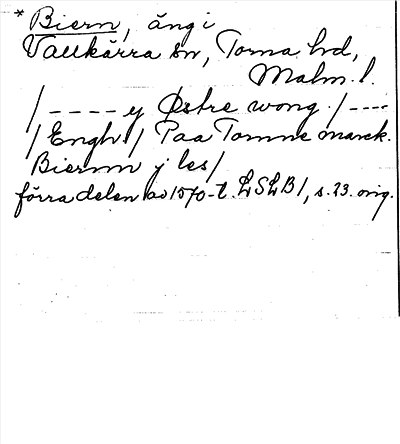 * Biern, äng i
Vallkärra sn, Torna hd,
Malm. l.
/ - - - - y Østre wong / - - - -
/ Engh / Paa Tomme marck.
Biernn j les /
förra delen av 1570-t. LSLB 1, s. 23. orig.